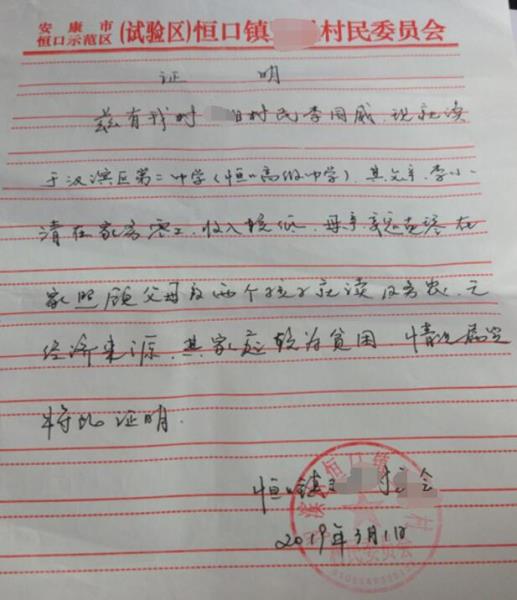 安康市
恒口示范区(试验区)恒口镇 村民委员会
证 明
兹有我村 组村民李同威,现就读
于汉滨区第二中学(恒口高级中学),其父亲,李小
清在家务零工,收入较低,母亲 在
家照顾父母及两个孩子就读及务农,无
经济来源,其家庭较为贫困,情况属实
特此证明.
恒口镇 会
2019年3月1日
恒口镇
村民委员会